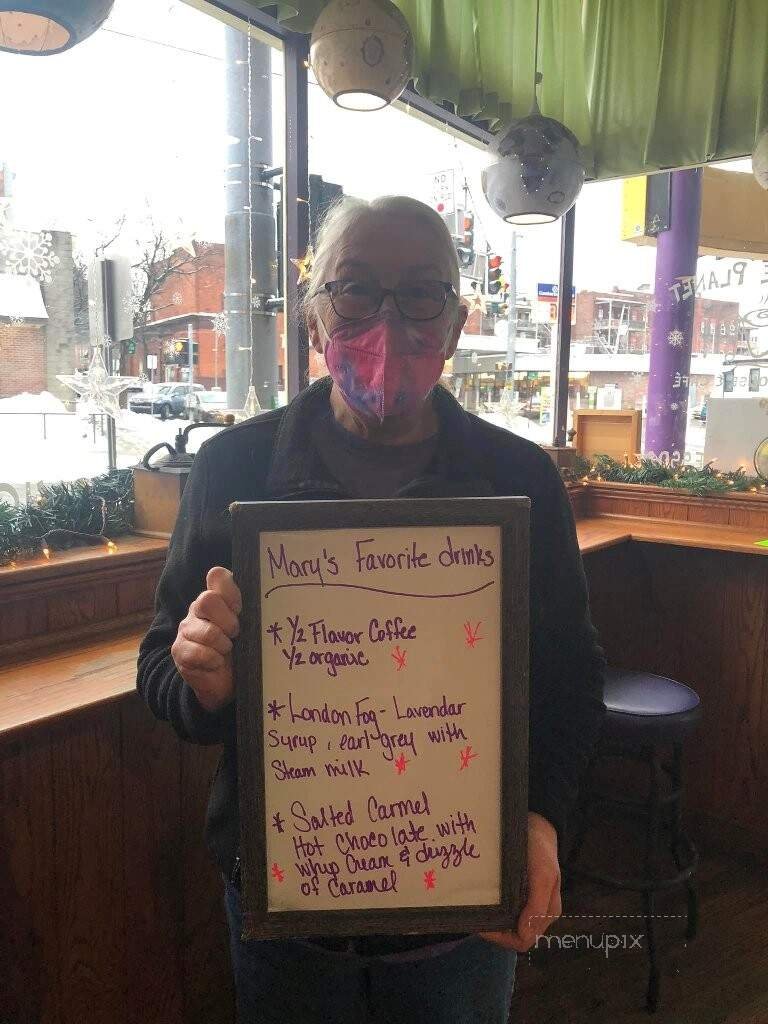 NO
PLANET
Mary's Favorite drinks
* ½ Flavor Coffee
½ organic
* London Fog - Lavendar
Syrup, earl grey with
Steam milk
* Salted Carmel
Hot Chocolate with
whip Cream & drizzle
of Caramel
menupix